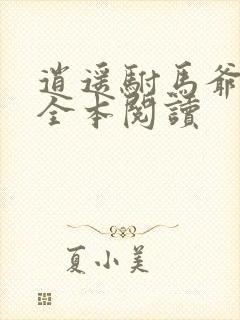 逍遥駙馬爺
全本閱讀
夏小美